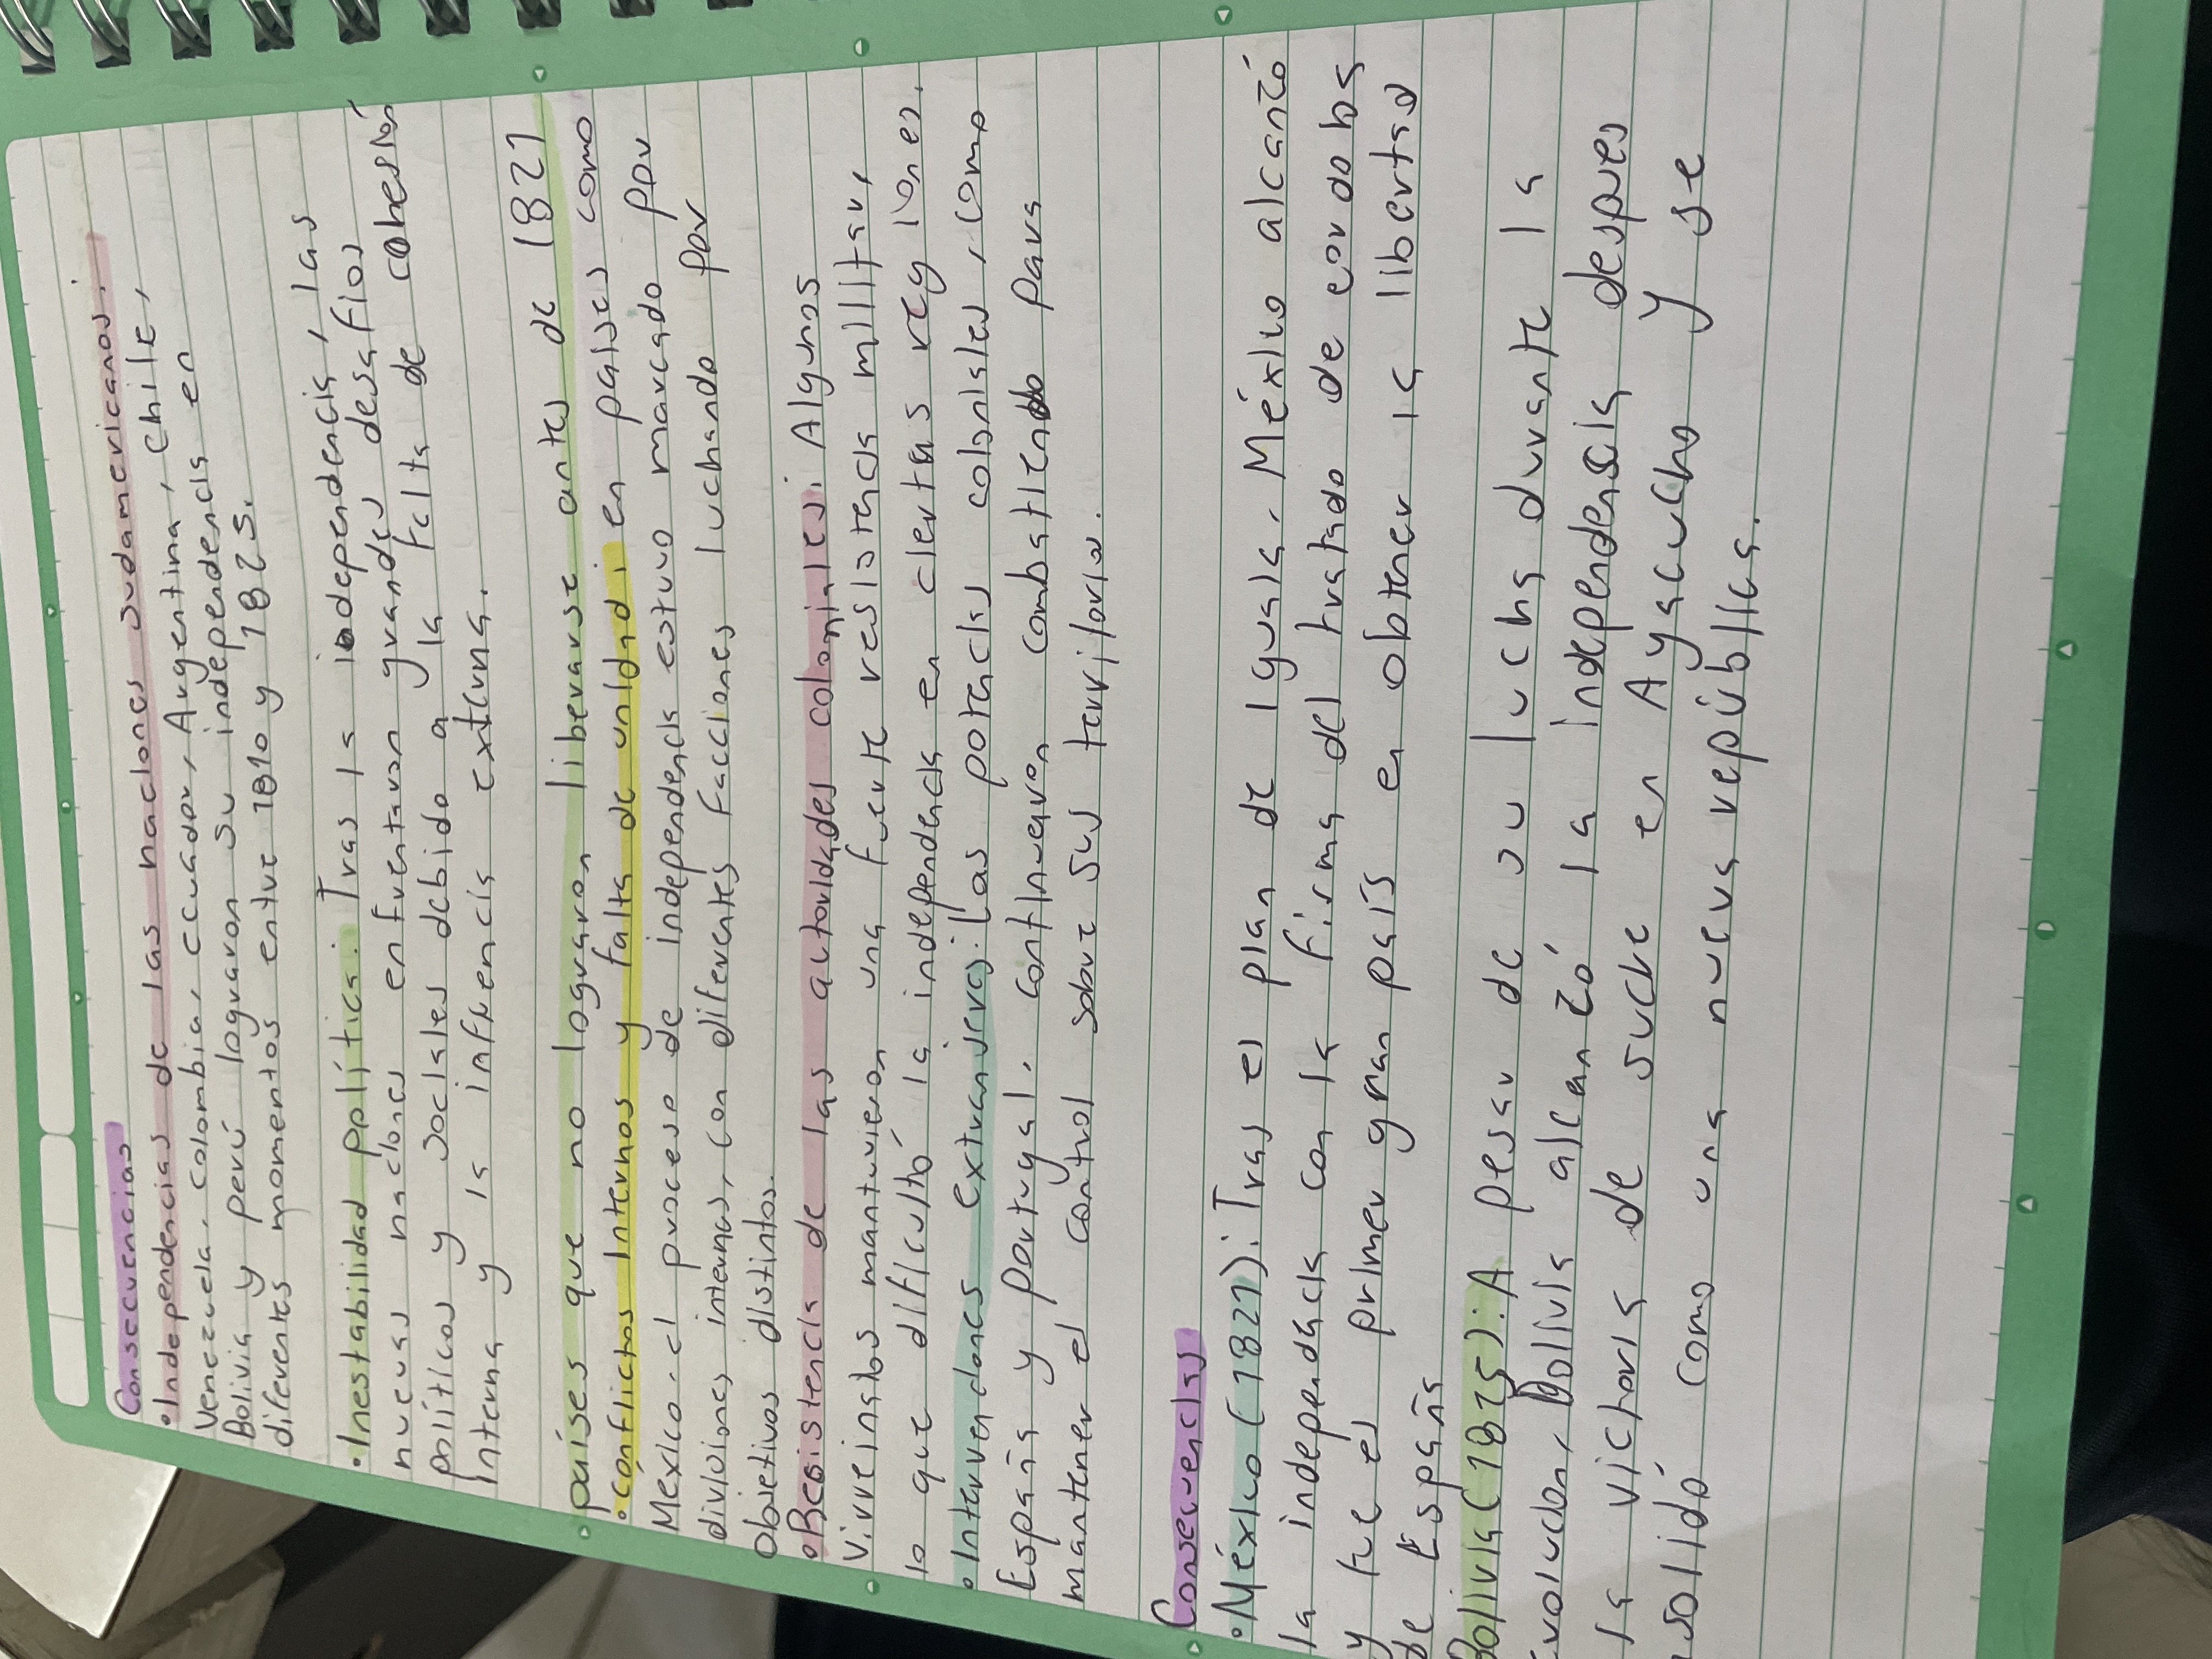 Consecuencias
• Independencias de las naciones sudamericanas.
Venezuela, colombia, ecuador, Argentina, Chile,
Bolivia y perú lograron su independencia en
diferentes momentos entre 1810 y 1825.
• Inestabilidad política: Tras la independencia, las
nuevas naciones enfrentaron grandes desafíos
políticos y sociales debido a la falta de cohesión
interna y la influencia externa.
países que no lograron liberarse antes de 1821
• conflictos internos y falta de unidad: en países como
México. el proceso de independencia estuvo marcado por
divisiones internas, con diferentes facciones luchando por
objetivos distintos.
• Resistencia de las autoridades coloniales: Algunos
Virreinatos mantuvieron una fuerte resistencia militar,
lo que dificultó la independencia en ciertas regiones.
• Intervenciones extranjeras: Las potencias coloniales, como
España y portugal, continuaron combatiendo para
mantener el control sobre sus territorios.
Consecuencias
• México (1821): Tras el plan de Iguala, México alcanzó
la independencia con la firma del tratado de cordobas
y fue el primer gran país en obtener la libertad
de España
Bolivia (1825): A pesar de su lucha durante la
evolucion, Bolivia alcanzó la independencia despues
la victoria de sucre en Ayacucho y se
solidó como una nueva república.